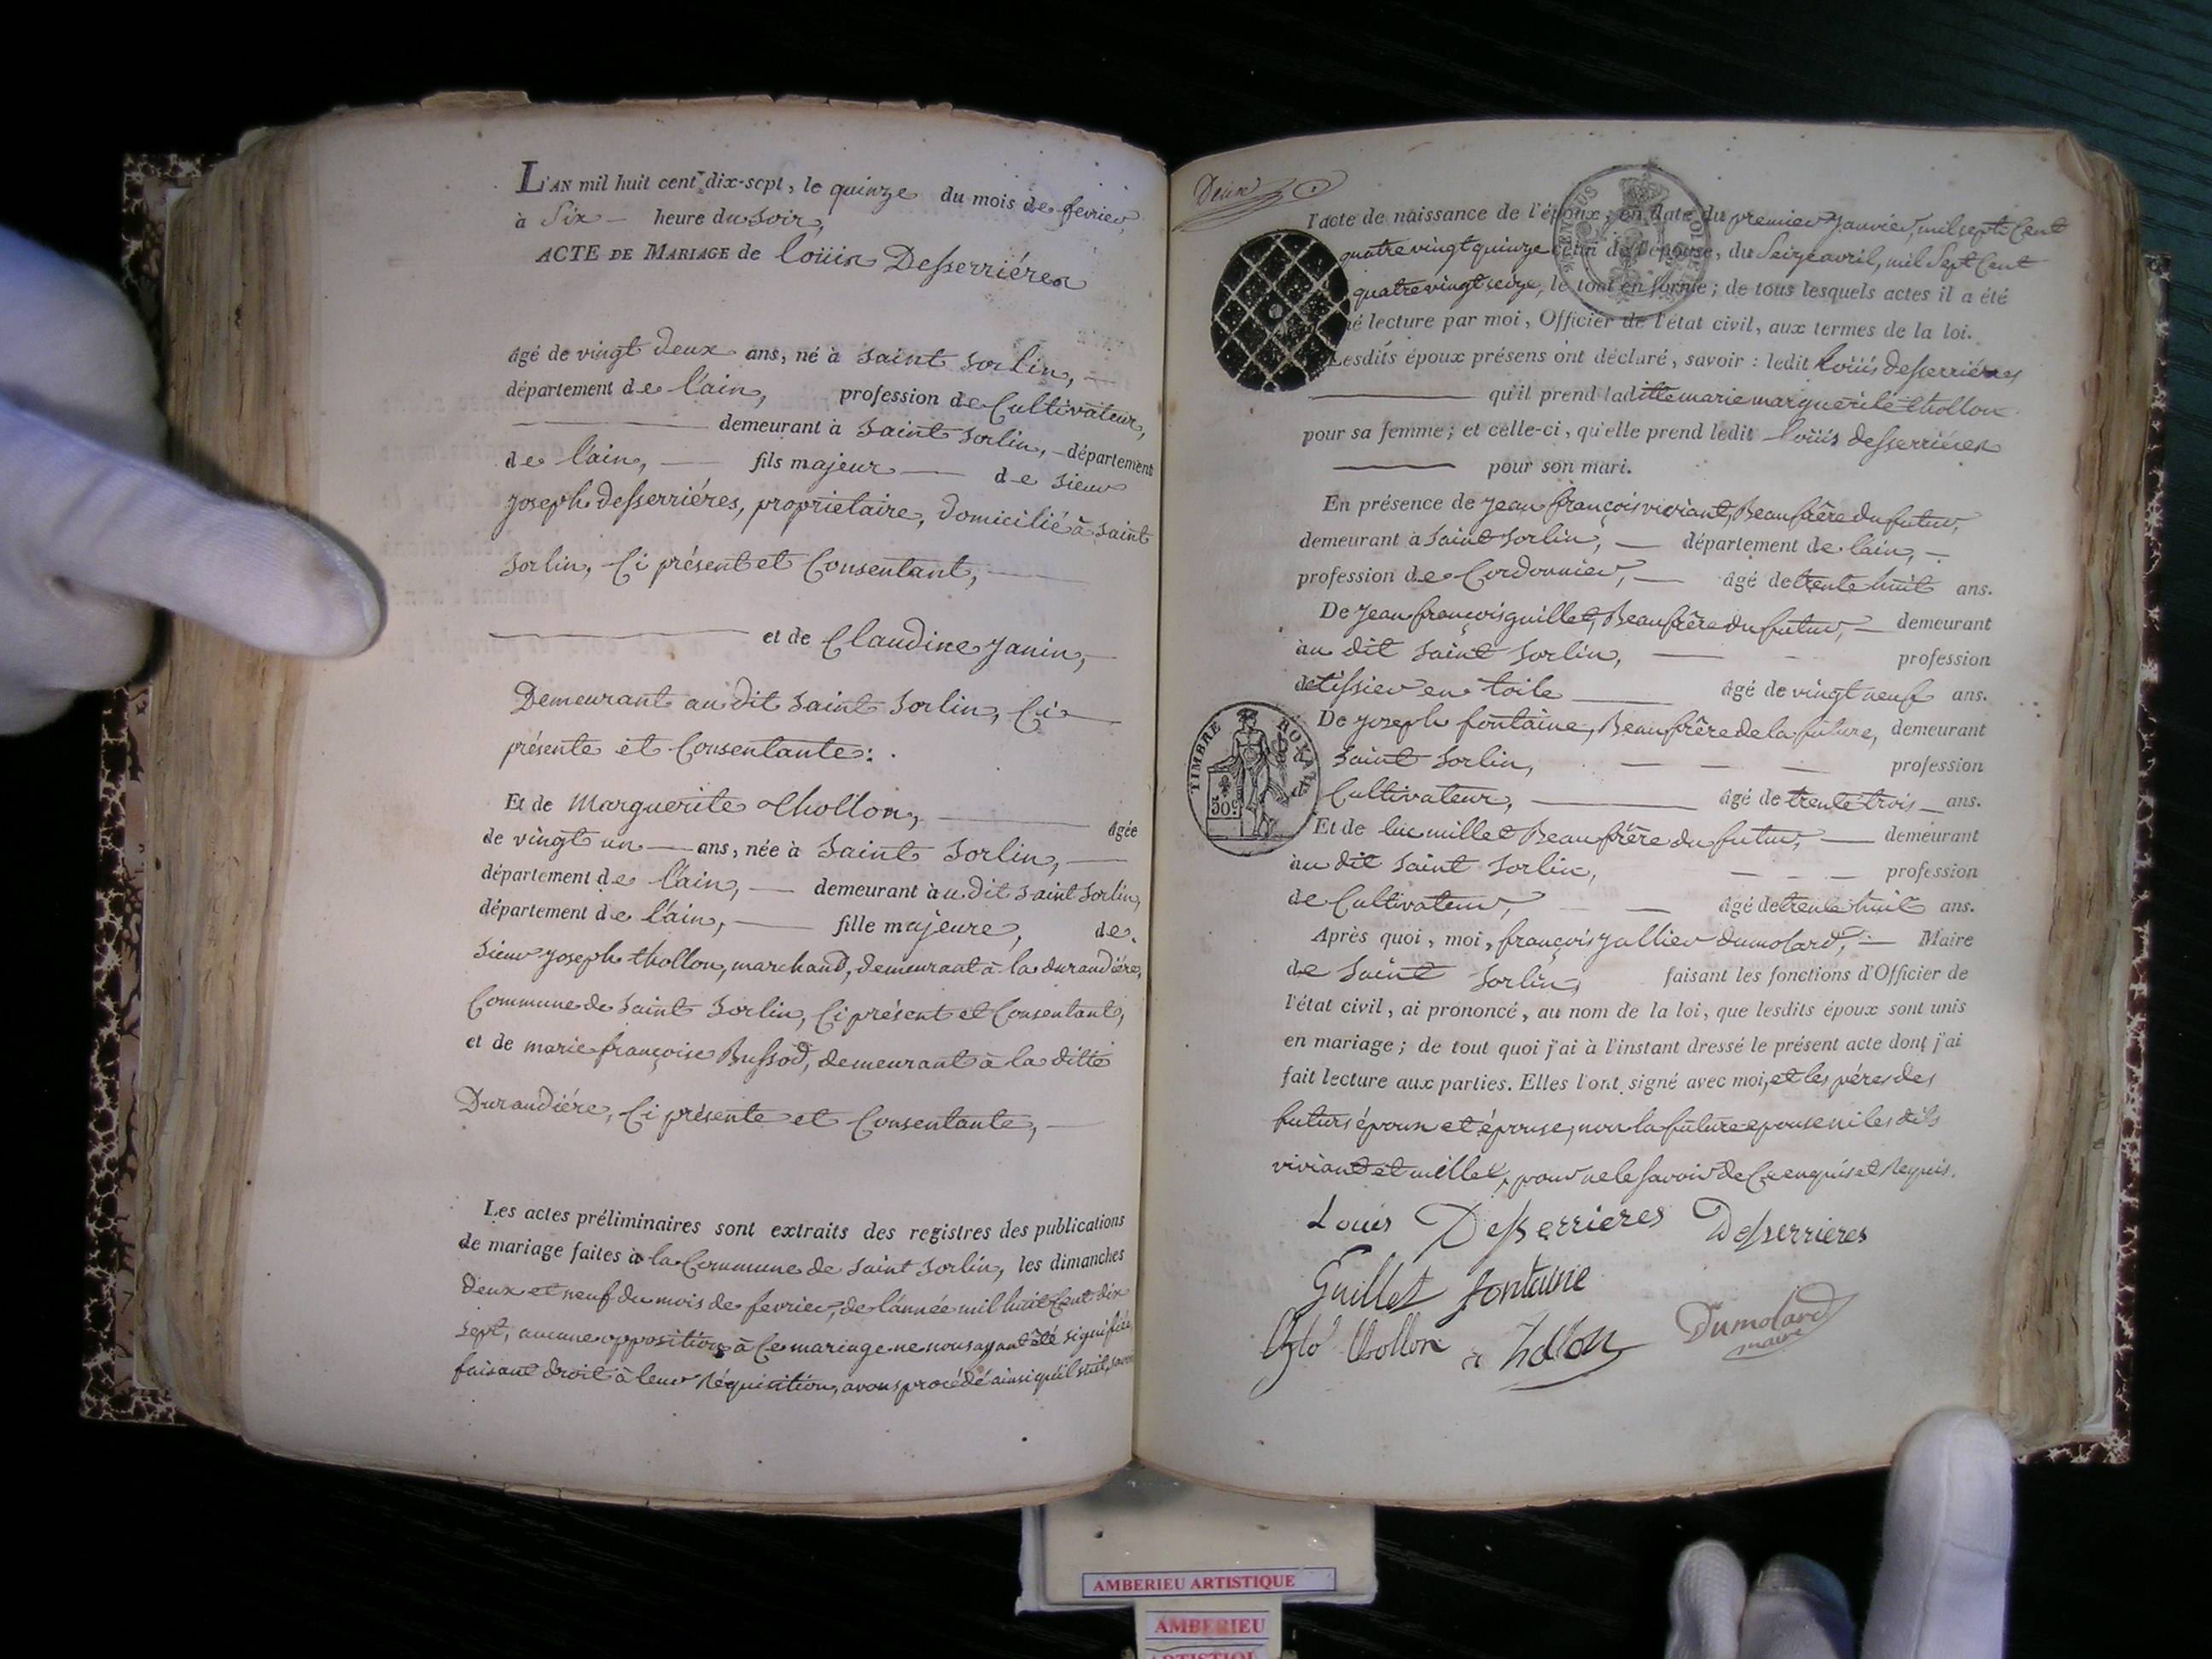 L'AN mil huit cent dix-sept, le quinze du mois de fevrier,
à Six heure du soir,
ACTE DE MARIAGE de Loüis Desserriéres
âgé de vingt deux ans, né à Saint Sorlin,
département de l'ain, profession de Cultivateur,
demeurant à Saint Sorlin, département
de l'ain, fils majeur de sieur
Joseph desserriéres, propriétaire, domicilié à Saint
Sorlin, Ci présent et Consentant,
et de Claudine Janin,
Demeurant au dit Saint Sorlin, Ci
présente et Consentante :
Et de Marguerite thollon, âgée
de vingt un ans, née à Saint Sorlin,
département de l'ain, demeurant à au dit Saint Sorlin,
département de l'ain, fille majeure, de
Sieur Joseph thollon, marchand, demeurant à la durandiére,
Commune de Saint Sorlin, Ci présent et Consentant,
et de marie françoise Bussod, demeurant à la ditte
Durandiére, Ci présente et Consentante,
Les actes préliminaires sont extraits des registres des publications
de mariage faites à la Commune de Saint Sorlin, les dimanches
deux et neuf du mois de fevrier, de l'année mil huit Cent dix
sept, aucune opposition à Ce mariage ne nous ayant été signifiée
faisant droit à leur réquisition, avons procédé ainsi qu'il suit, savoir
l'acte de naissance de l'époux, en date du premier Janvier, mil sept Cent
quatre vingt quinze celui de l'épouse, du Seize avril, mil Sept Cent
quatre vingt seize, le tout en forme ; de tous lesquels actes il a été
né lecture par moi, Officier de l'état civil, aux termes de la loi.
Lesdits époux présens ont déclaré, savoir : ledit Loüis desserriéres
qu'il prend laditte marie marguerite thollon
pour sa femme ; et celle-ci, qu'elle prend ledit Loüis desserriéres
pour son mari.
En présence de Jean françois viviant, Beaufrère du futur,
demeurant à Saint Sorlin, département de l'ain,
profession de Cordonnier, âgé de trente huit ans.
De Jean françois guillet, Beaufrère du futur, demeurant
au dit Saint Sorlin, profession
de tissier en toile âgé de vingt neuf ans.
De Joseph fontaine, Beaufrère de la future, demeurant
Saint Sorlin, profession
Cultivateur, âgé de trente trois ans.
Et de luc millet Beaufrère du futur, demeurant
au dit Saint Sorlin, profession
de Cultivateur, âgé de trente huit ans.
Après quoi, moi, françois Jallier dumolard, Maire
de Saint Sorlin, faisant les fonctions d'Officier de
l'état civil, ai prononcé, au nom de la loi, que lesdits époux sont unis
en mariage ; de tout quoi j'ai à l'instant dressé le présent acte dont j'ai
fait lecture aux parties. Elles l'ont signé avec moi, et les péres des
futurs époux et épouse, non la future epouse ni les dits
viviant et millet, pour ne le savoir de Ce enquis et Requis.
Louis Desserrieres Desserrieres
Guillet fontaine
thollon Dumolard
maire
TIMBRE ROYAL
50c
AMBERIEU ARTISTIQUE
AMBERIEU
ARTISTIQUE